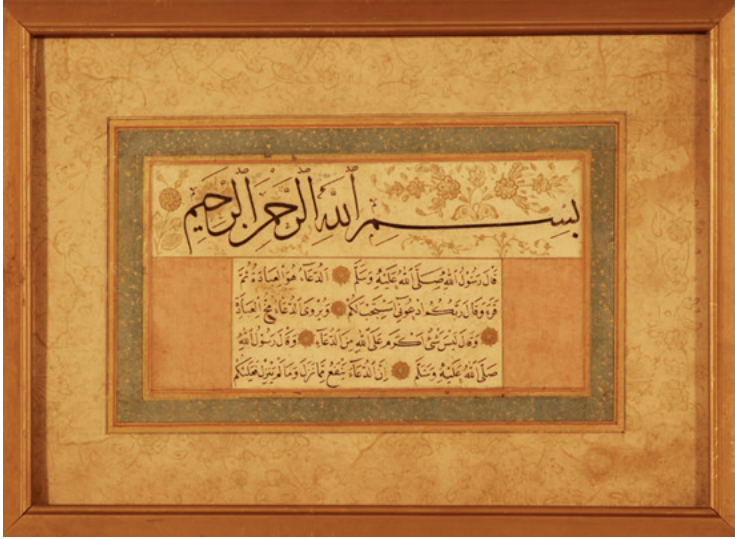 بِسْمِ اللهِ الرَّحْمٰنِ الرَّحِيمِ
قَالَ رَسُولُ اللهِ صَلَّى اللهُ عَلَيْهِ وَسَلَّمَ الدُّعَاءُ هُوَ الْعِبَادَةُ ثُمَّ
قَرَءَ وَقَالَ رَبُّكُمُ ادْعُونِي اَسْتَجِبْ لَكُمْ وَيُرْوَى الدُّعَاءُ مُخُّ الْعِبَادَةِ
وَقَالَ لَيْسَ شَيْءٌ اَكْرَمَ عَلَى اللهِ مِنَ الدُّعَاءِ وَقَالَ رَسُولُ اللهِ
صَلَّى اللهُ عَلَيْهِ وَسَلَّمَ اِنَّ الدُّعَاءَ يَنْفَعُ مِمَّا نَزَلَ وَمِمَّا لَمْ يَنْزِلْ فَعَلَيْكُمْ